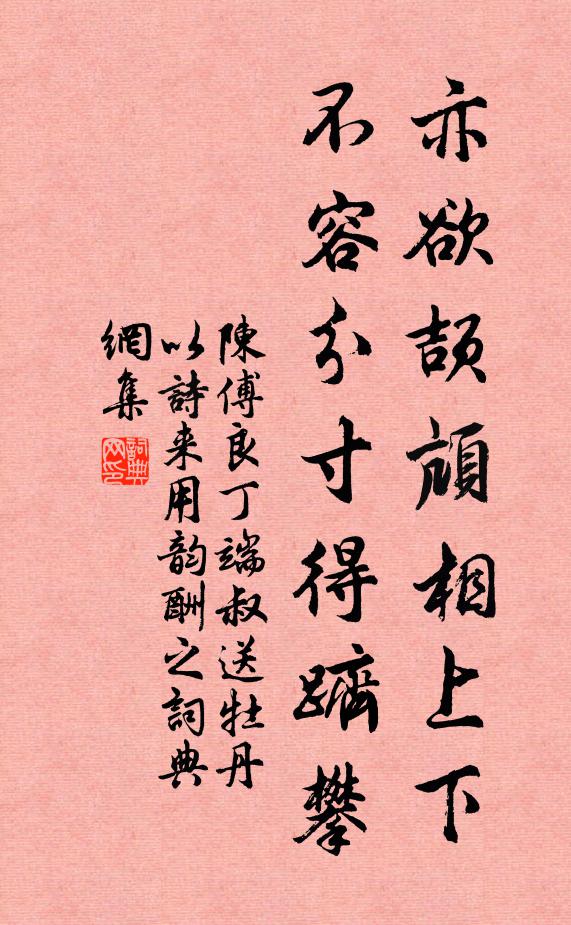 亦欲頡頏相上下
不容分寸得躋攀
陳傅良丁端叔送牡丹
以詩来用韵酬之詞典
網集
詞典
网印